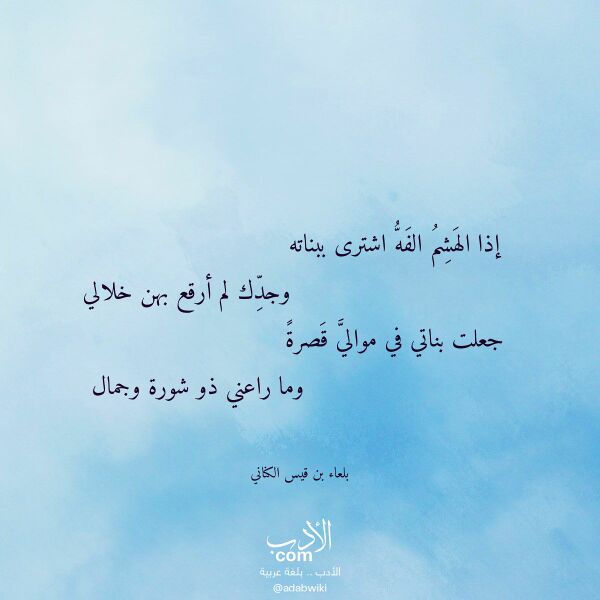 إذا الهَشِمُ الفَهُّ اشترى ببناته
وجدِّك لم أرقع بهن خلالي
جعلت بناتي في مواليَّ قَصرةً
وما راعني ذو شورة وجمال
بلعاء بن قيس الكناني
الأدب
com
الأدب .. بلغة عربية
@adabwiki